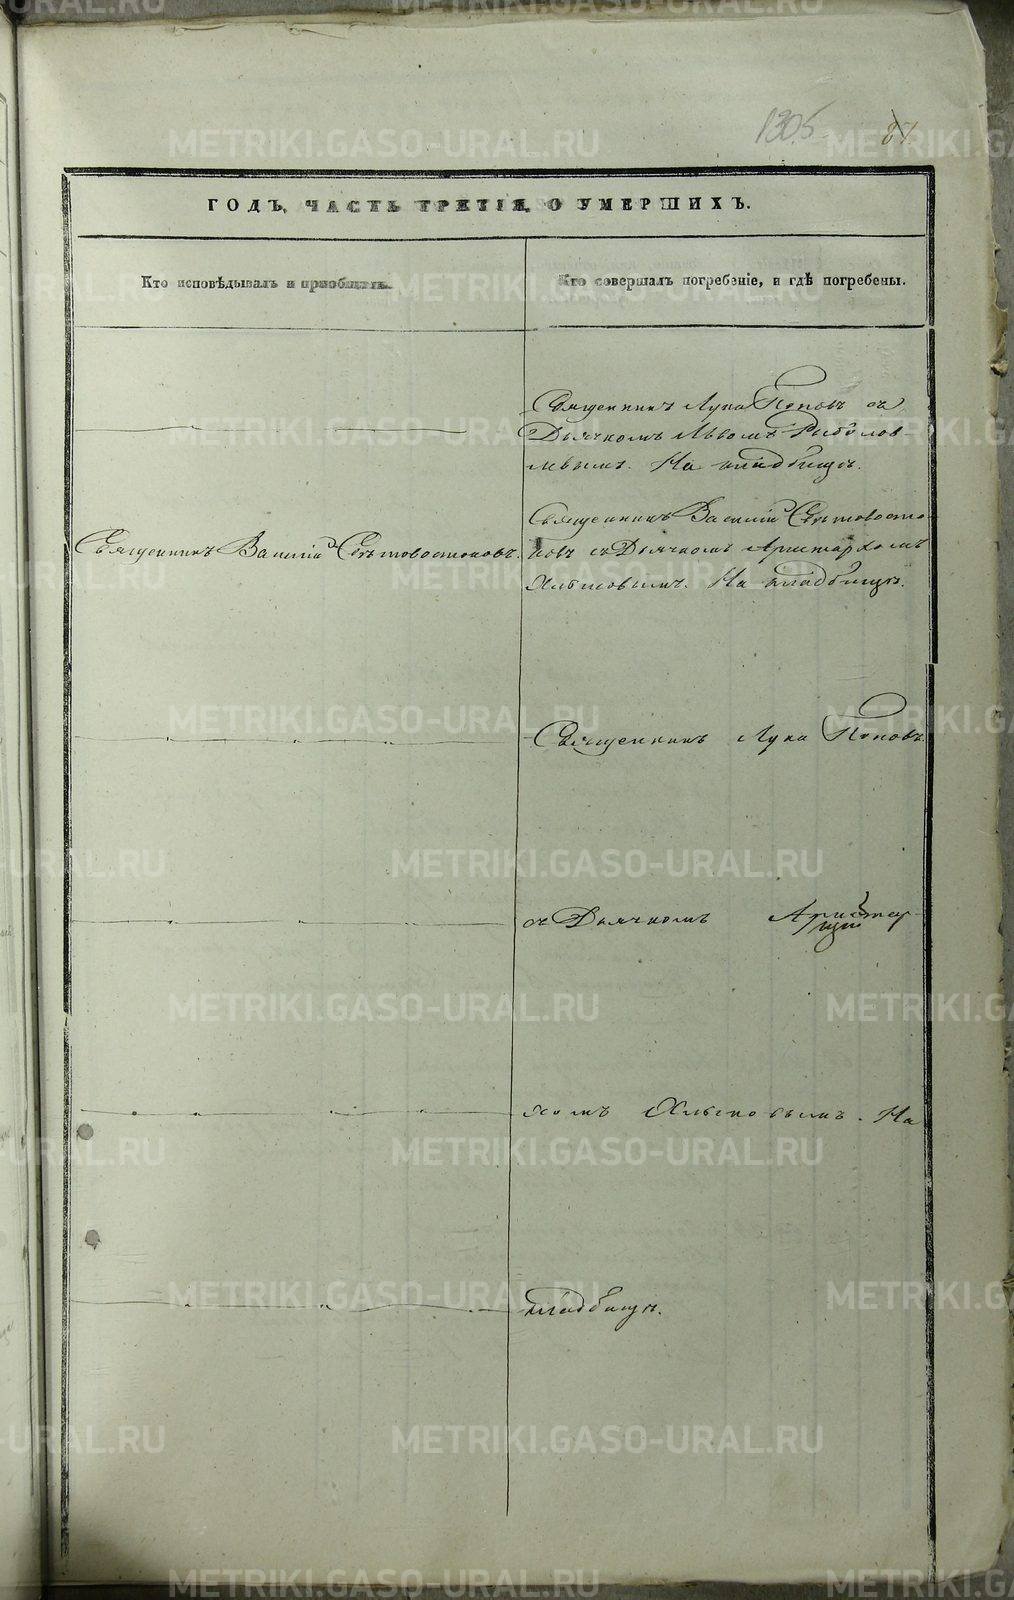 1305
87
ГОДЪ, ЧАСТЬ ТРЕТІЯ, О УМЕРШИХЪ.
Кто исповѣдывалъ и пріобщалъ.
Кто совершалъ погребеніе, и гдѣ погребены.
Священникъ Лука Поповъ съ
Дьячкомъ Львомъ Рыболов-
левымъ. На кладбищѣ.
Священникъ Василій Свѣтовостоковъ.
Священникъ Василій Свѣтовосто-
ковъ съ Дьячкомъ Аристархомъ
Хлыновымъ. На кладбищѣ.
Священникъ Лука Поповъ
съ Дьячкомъ Аристар-
хомъ Хлыновымъ. На
кладбищѣ.
METRIKI.GASO-URAL.RU